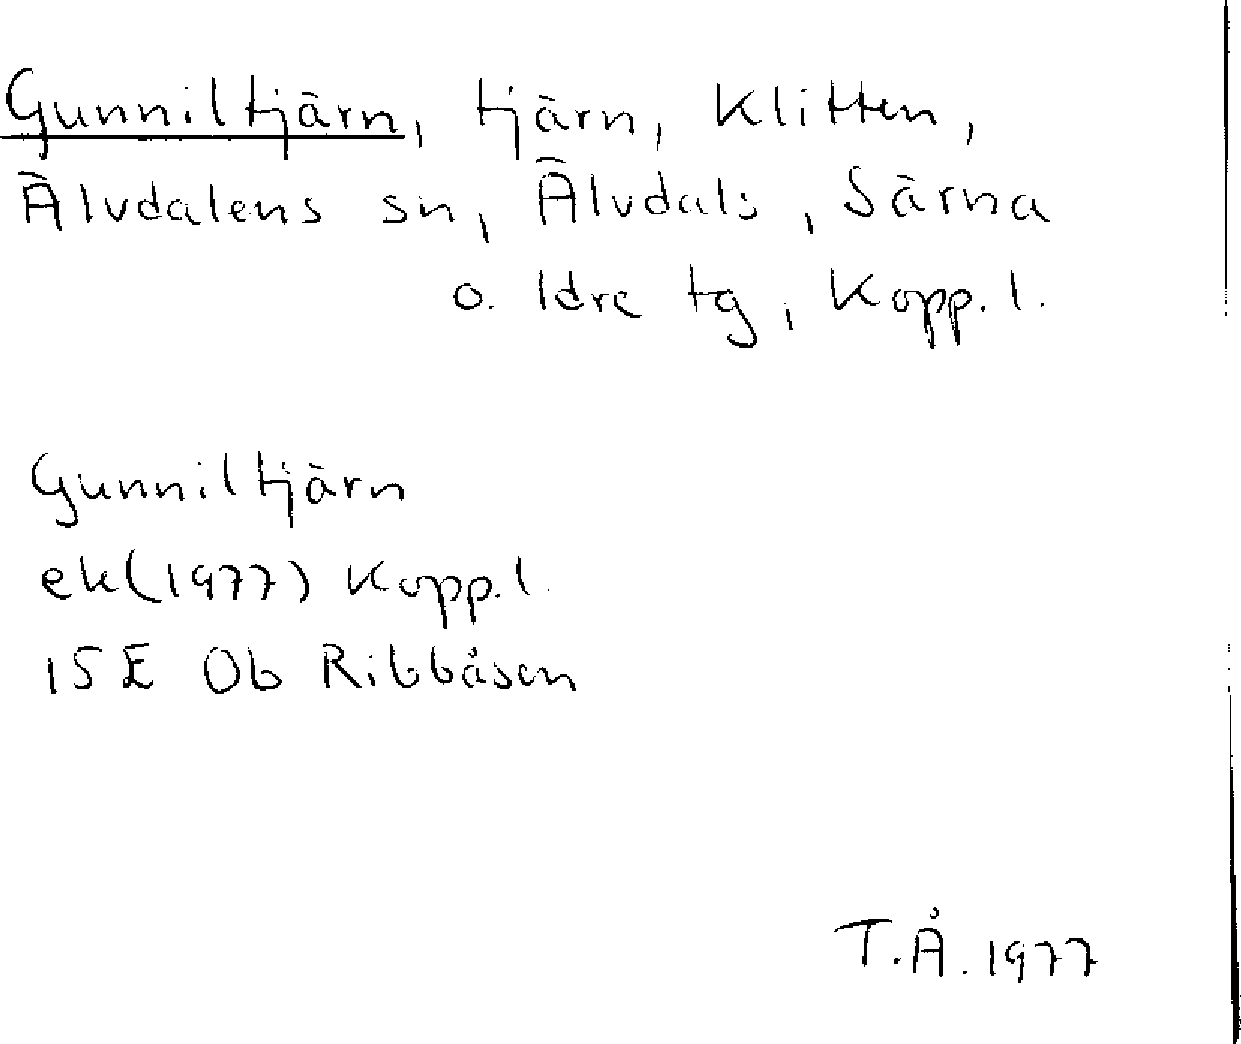 Gunniltjärn, tjärn, Klitten,
Älvdalens sn, Älvdals, Särna
o. Idre tg, Kopp. l.
Gunniltjärn
ek(1977) Kopp. l.
15E 0b Ribbåsen
T.Å. 1977